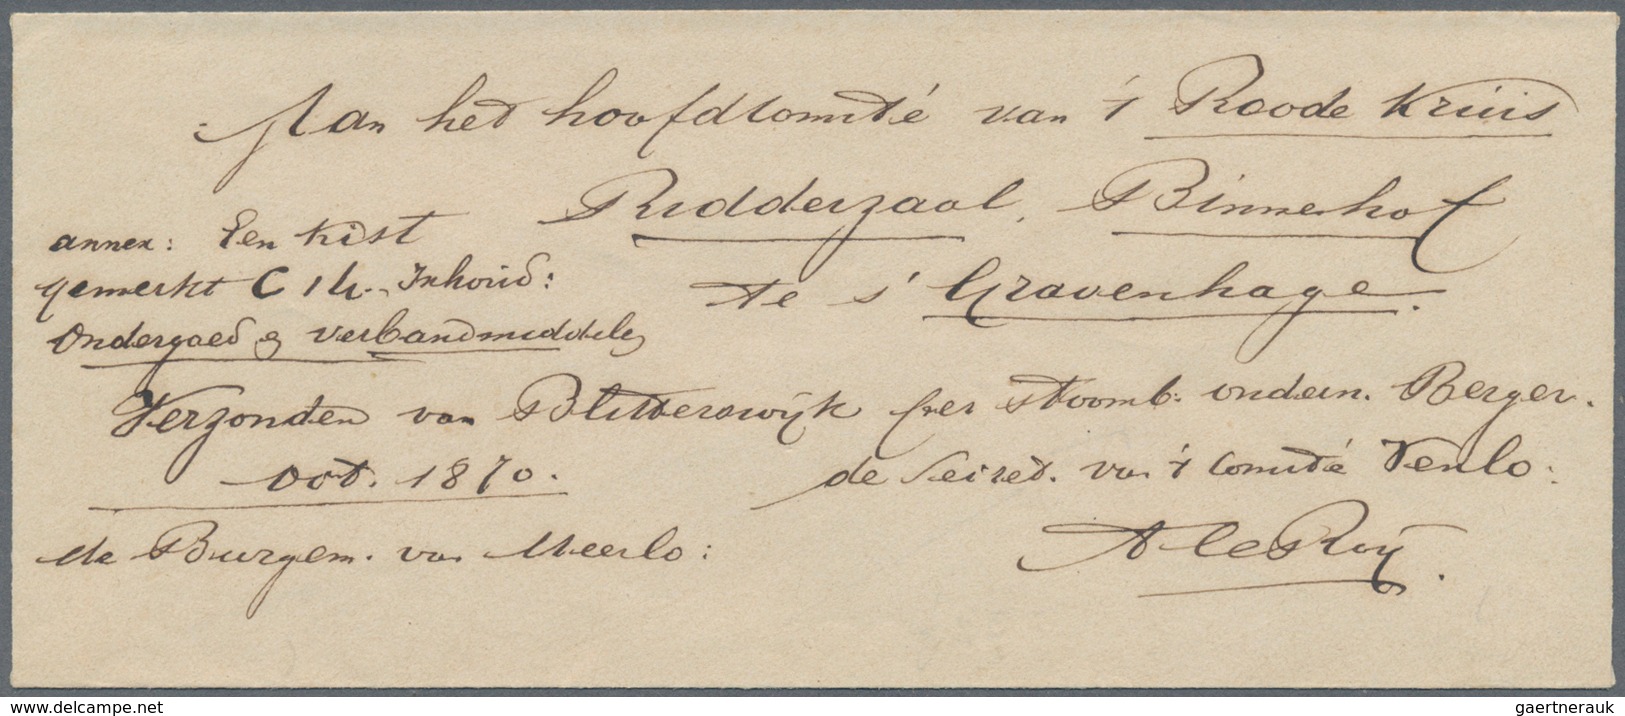 Aan het hoofdcomité van 't Roode Kruis
Ridderzaal, Binnenhof
te s' Gravenhage.
annex: Een kist
gemerkt C 14. Inhoud:
Ondergoed & verbandmiddelen
Verzonden van Blitterswijk per stoomb: ondern. Berger.
Oct. 1870.
de Secret. van 't Comité Venlo:
de Burgem. van Meerlo:
A le Roij.
www.delcampe.net
gaertnerauk